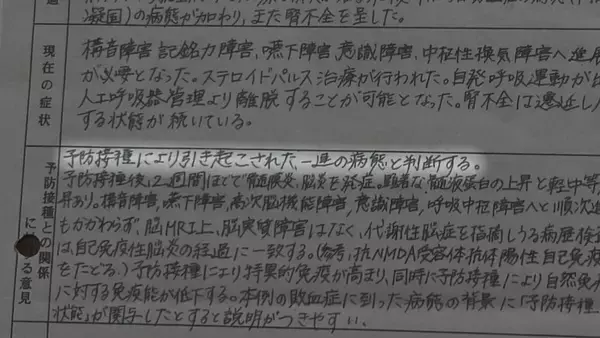 凝固)の病態が加わり、また腎不全を呈した。
現在の症状
構音障害 記銘力障害、嚥下障害、意識障害、中枢性換気障害へ進展
が必要となった。ステロイドパルス治療が行われた。自発呼吸運動が
人工呼吸器管理より離脱することが可能となった。腎不全は遷延し
する状態が続いている。
予防接種との関係
に る意見
予防接種により引き起こされた、一連の病態と判断する。
予防接種後、2週間ほどで髄膜炎、脳炎を発症。顕著な髄液蛋白の上昇と軽中等
昇あり。構音障害、嚥下障害、高次脳機能障害、意識障害、呼吸中枢障害へと順次進
もかかわらず、脳MRI上、脳実質障害はなく、代謝性脳症を指摘しうる病歴検査
は、自己免疫性脳炎の経過に一致する。(参考、抗NMDA受容体抗体陽性自己免疫
をたどる。)予防接種により特異的免疫が高まり、同時に予防接種により自然免
に対する免疫能が低下する。本例の敗血症に到った病態の背景に「予防接種
状態」が関与したとすると説明がつきやすい。